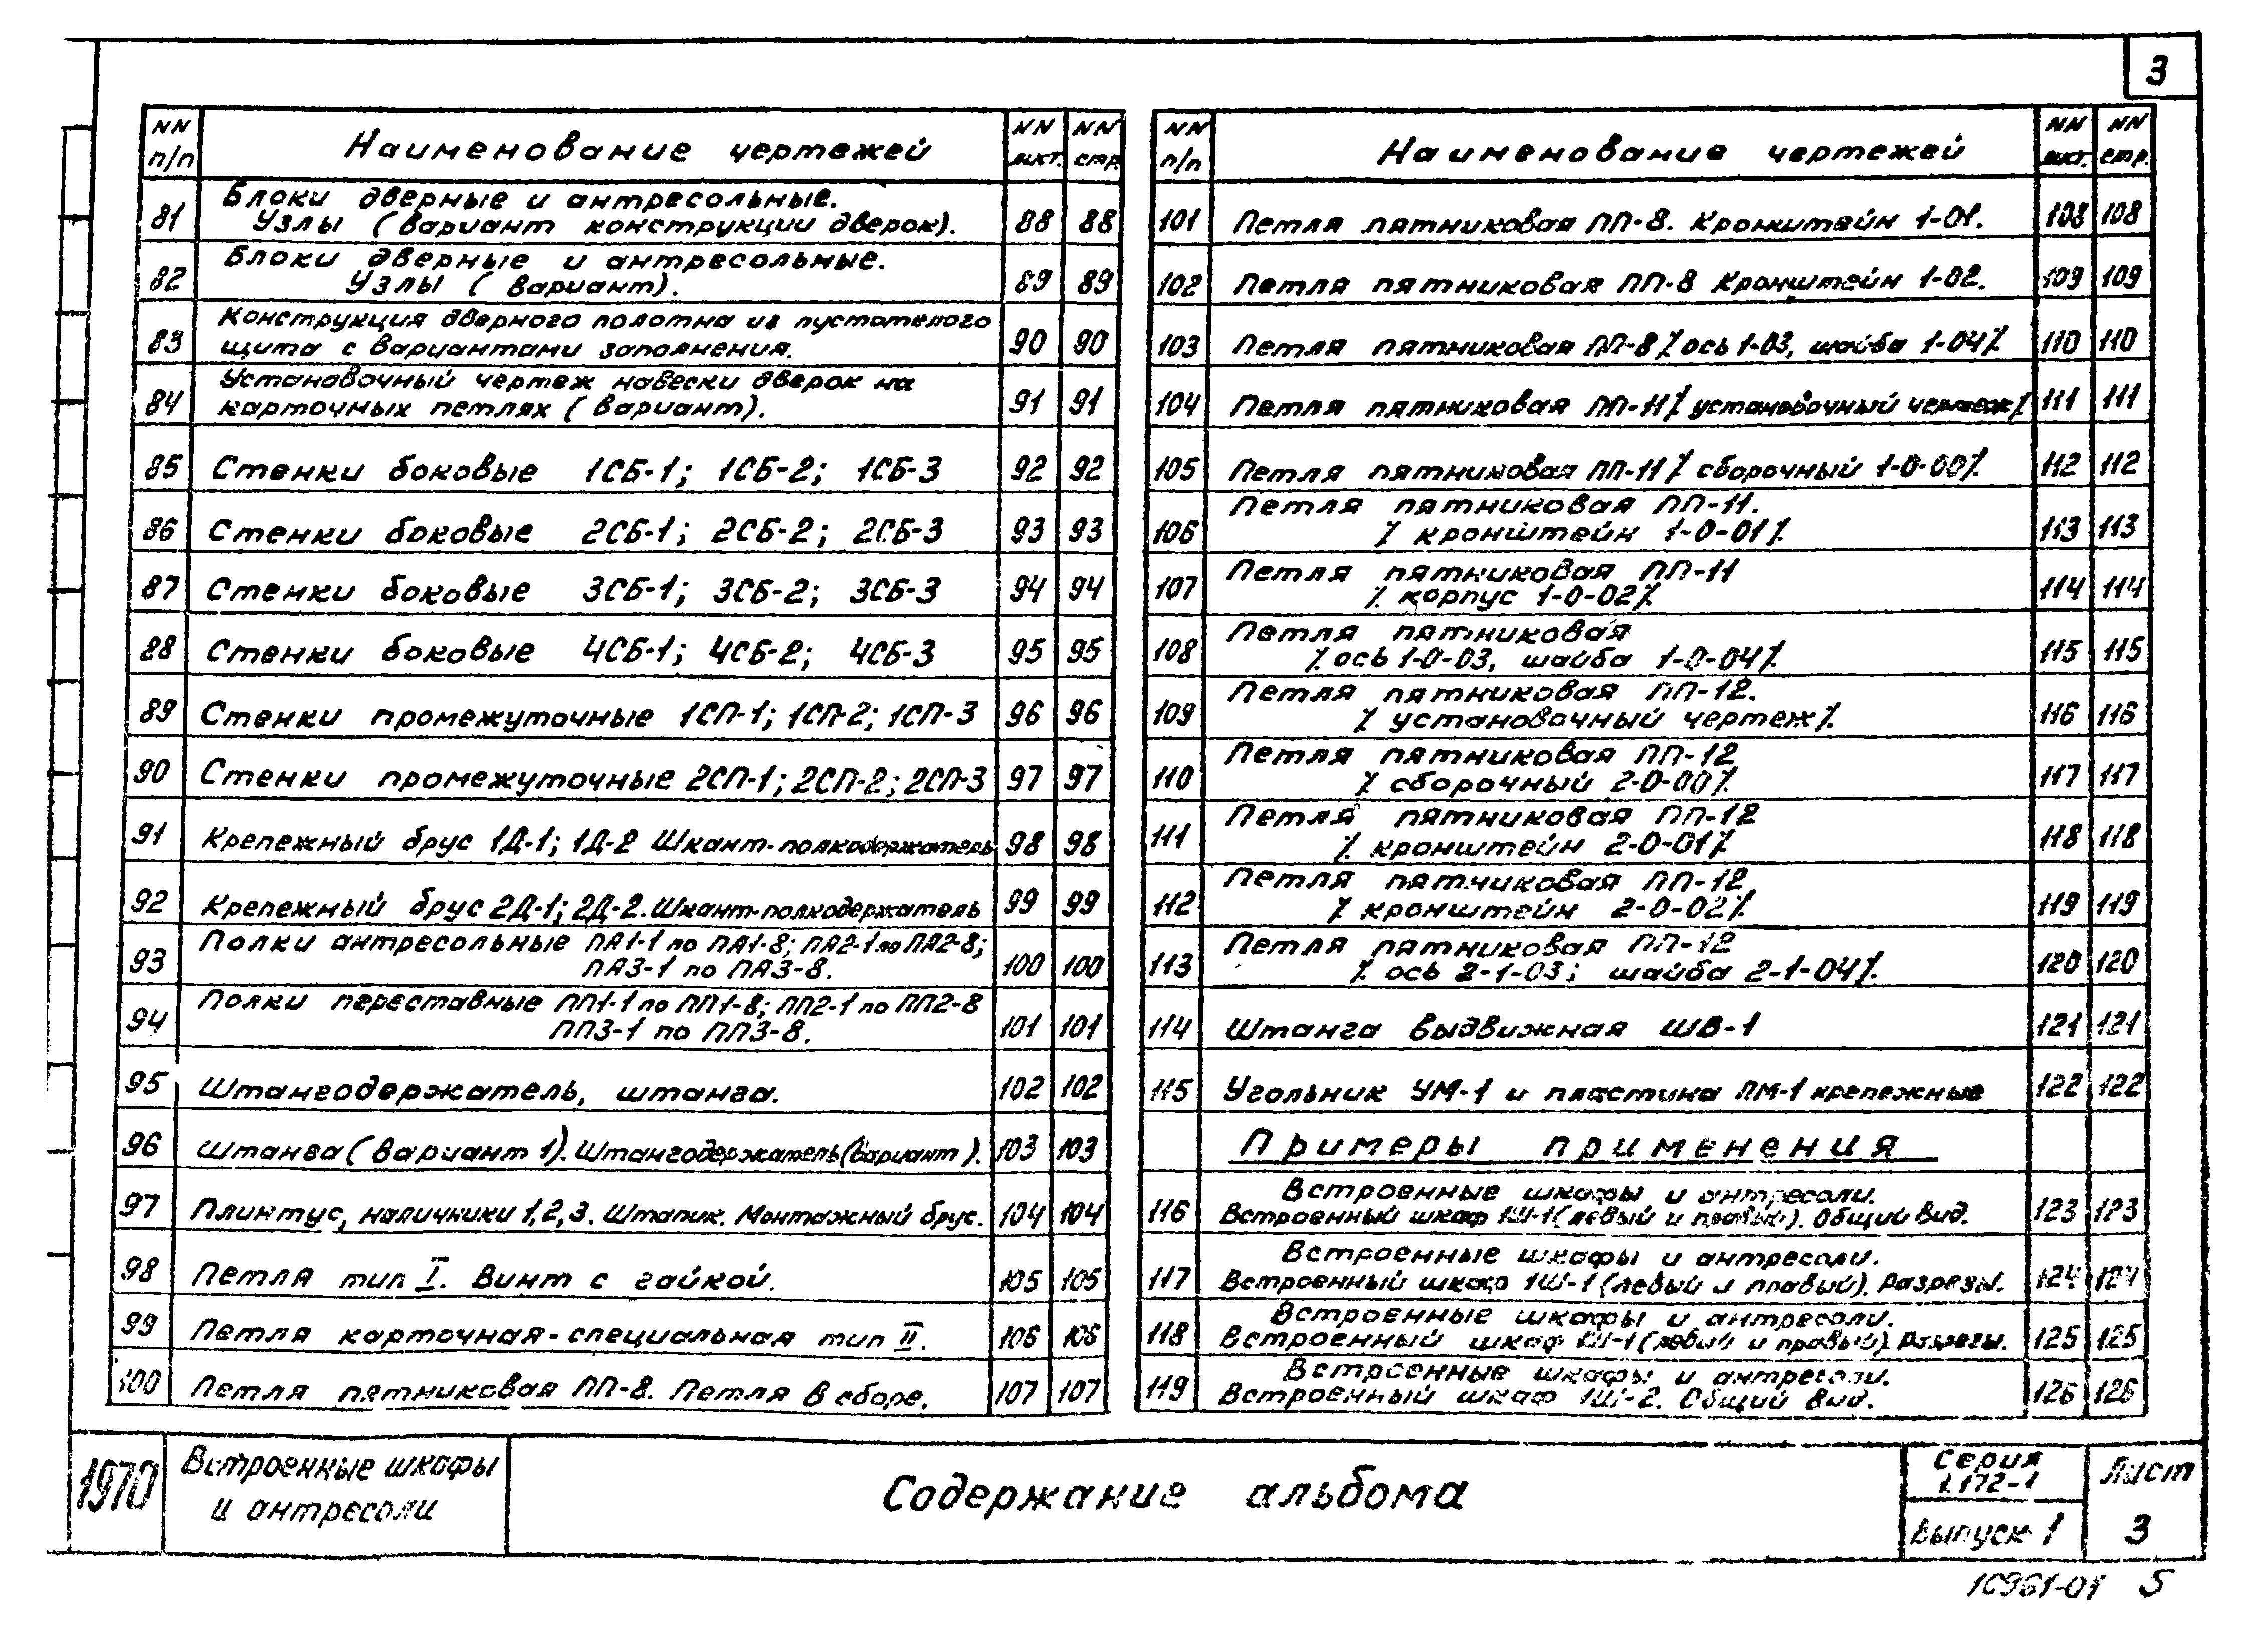 3
NN п/п Наименование чертежей NN лист. NN стр.
81 Блоки дверные и антресольные.
Узлы (вариант конструкции дверок). 88 88
82 Блоки дверные и антресольные.
Узлы (вариант). 89 89
83 Конструкция дверного полотна из пустотелого
щита с вариантами заполнения. 90 90
84 Установочный чертеж навески дверок на
карточных петлях (вариант). 91 91
85 Стенки боковые 1СБ-1; 1СБ-2; 1СБ-3 92 92
86 Стенки боковые 2СБ-1; 2СБ-2; 2СБ-3 93 93
87 Стенки боковые 3СБ-1; 3СБ-2; 3СБ-3 94 94
88 Стенки боковые 4СБ-1; 4СБ-2; 4СБ-3 95 95
89 Стенки промежуточные 1СП-1; 1СП-2; 1СП-3 96 96
90 Стенки промежуточные 2СП-1; 2СП-2; 2СП-3 97 97
91 Крепежный брус 1Д-1; 1Д-2 Шкант-полкодержатель 98 98
92 Крепежный брус 2Д-1; 2Д-2. Шкант-полкодержатель 99 99
93 Полки антресольные ПА1-1 по ПА1-8; ПА2-1 по ПА2-8;
ПА3-1 по ПА3-8. 100 100
94 Полки переставные ПП1-1 по ПП1-8; ПП2-1 по ПП2-8
ПП3-1 по ПП3-8. 101 101
95 Штангодержатель, штанга. 102 102
96 Штанга (вариант 1). Штангодержатель (вариант). 103 103
97 Плинтус, наличники 1,2,3. Штапик. Монтажный брус. 104 104
98 Петля тип I. Винт с гайкой. 105 105
99 Петля карточная-специальная тип II. 106 106
100 Петля пятниковая ПП-8. Петля в сборе. 107 107
NN п/п Наименование чертежей NN лист. NN стр.
101 Петля пятниковая ПП-8. Кронштейн 1-01. 108 108
102 Петля пятниковая ПП-8 Кронштейн 1-02. 109 109
103 Петля пятниковая ПП-8 /. ось 1-03, шайба 1-04 /. 110 110
104 Петля пятниковая ПП-11 /. установочный чертеж /. 111 111
105 Петля пятниковая ПП-11 /. сборочный 1-0-00 /. 112 112
106 Петля пятниковая ПП-11.
/. кронштейн 1-0-01 /. 113 113
107 Петля пятниковая ПП-11
/. корпус 1-0-02 /. 114 114
108 Петля пятниковая
/. ось 1-0-03, шайба 1-0-04 /. 115 115
109 Петля пятниковая ПП-12.
/. установочный чертеж /. 116 116
110 Петля пятниковая ПП-12
/. сборочный 2-0-00 /. 117 117
111 Петля пятниковая ПП-12
/. кронштейн 2-0-01 /. 118 118
112 Петля пятниковая ПП-12
/. кронштейн 2-0-02 /. 119 119
113 Петля пятниковая ПП-12
/. ось 2-1-03; шайба 2-1-04 /. 120 120
114 Штанга выдвижная ШВ-1 121 121
115 Угольник УМ-1 и пластина ПМ-1 крепежные 122 122
Примеры применения
116 Встроенные шкафы и антресоли.
Встроенный шкаф 1Ш-1 (левый и правый). Общий вид. 123 123
117 Встроенные шкафы и антресоли.
Встроенный шкаф 1Ш-1 (левый и правый). Разрезы. 124 124
118 Встроенные шкафы и антресоли.
Встроенный шкаф 1Ш-1 (левый и правый). Разрезы. 125 125
119 Встроенные шкафы и антресоли.
Встроенный шкаф 1Ш-2. Общий вид. 126 126
1970
Встроенные шкафы
и антресоли
Содержание альбома
Серия
1.172-1
Выпуск 1
Лист
3
10961-01 5